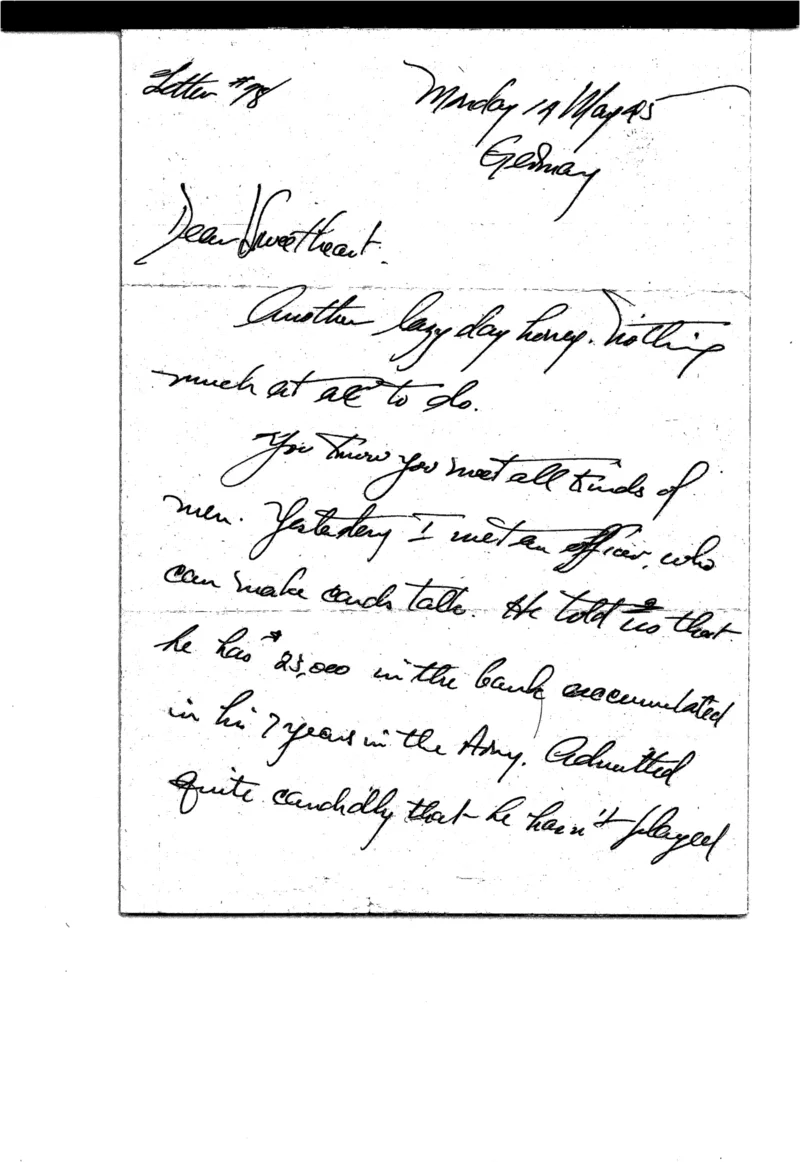 Letter #78
Monday 14 May 45
Germany
Dear Sweetheart.
Another lazy day honey. Nothing
much at all to do.
You know you meet all kinds of
men. Yesterday I met an officer, who
can make cards talk. He told us that
he has $25,000 in the bank accumulated
in his 7 years in the Army. Admitted
quite candidly that he hasn't played